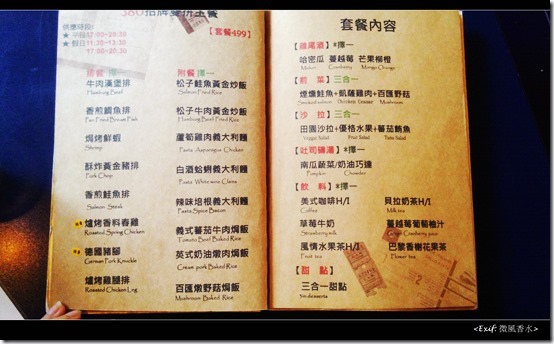 380招牌雙拼主餐
供應時段:
【套餐499】
★ 平日17:00~20:30
★ 假日11:30~13:30
17:00~20:30
排餐 擇一
附餐 擇一
牛肉漢堡排
Hamburg Beef
松子鮭魚黃金炒飯
Salmon Fried Rice
香煎鯛魚排
Pan Fried Bream Fish
松子牛肉黃金炒飯
Hamburg Beef Fried Rice
焗烤鮮蝦
Shrimp
蘆筍雞肉義大利麵
Pasta Asparagus Chicken
酥炸黃金豬排
Pork Chop
白酒蛤蜊義大利麵
Pasta White wine Clams
香煎鮭魚排
Salmon Steak
辣味培根義大利麵
Pasta Spice Bacon
爐烤香料春雞
Roasted Spring Chicken
義式蕃茄牛肉焗飯
Tomato Beef Baked Rice
德國豬腳
German Pork Knuckle
英式奶油燉肉焗飯
Cream pork Baked Rice
爐烤雞腿排
Roasted Chicken Leg
百匯燉野菇焗飯
Mushroom Baked Rice
套餐內容
【雞尾酒】*擇一
哈密瓜 蔓越莓 芒果柳橙
Melon Cranberry Mango Orange
【前菜】三合一
煙燻鮭魚+凱薩雞肉+百匯野菇
Smoked salmon Chicken Ceaser Mushroom
【沙 拉】三合一
田園沙拉+優格水果+蕃茄鮪魚
Veggie Salad Fruit Salad Tuna Salad
【吐司磚湯】*擇一
南瓜蔬菜/奶油巧達
Pumpkin Chowder
【飲 料】*擇一
美式咖啡H/I
Coffey
貝拉奶茶H/I
Milk tea
草莓牛奶
Strawberry milk
蔓越莓葡萄柚汁
Grape Cranberry juice
風情水果茶H/I
Fruit tea
巴黎香榭花果茶
Flower tea
【甜 點】
三合一甜點
Sm desserts
<Exif: 微風香水>